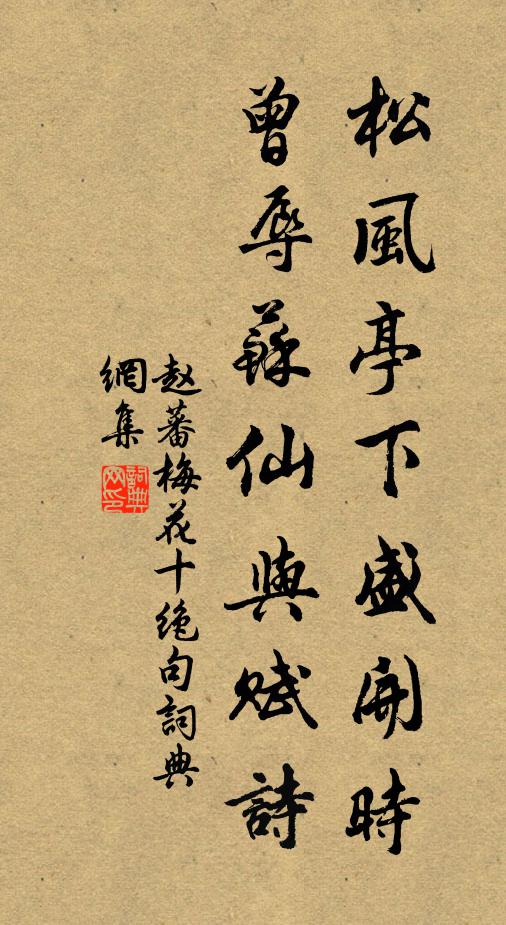 松風亭下盛開時
曾辱蘇仙與賦詩
赵蕃梅花十绝句詞典
網集
詞典
网印